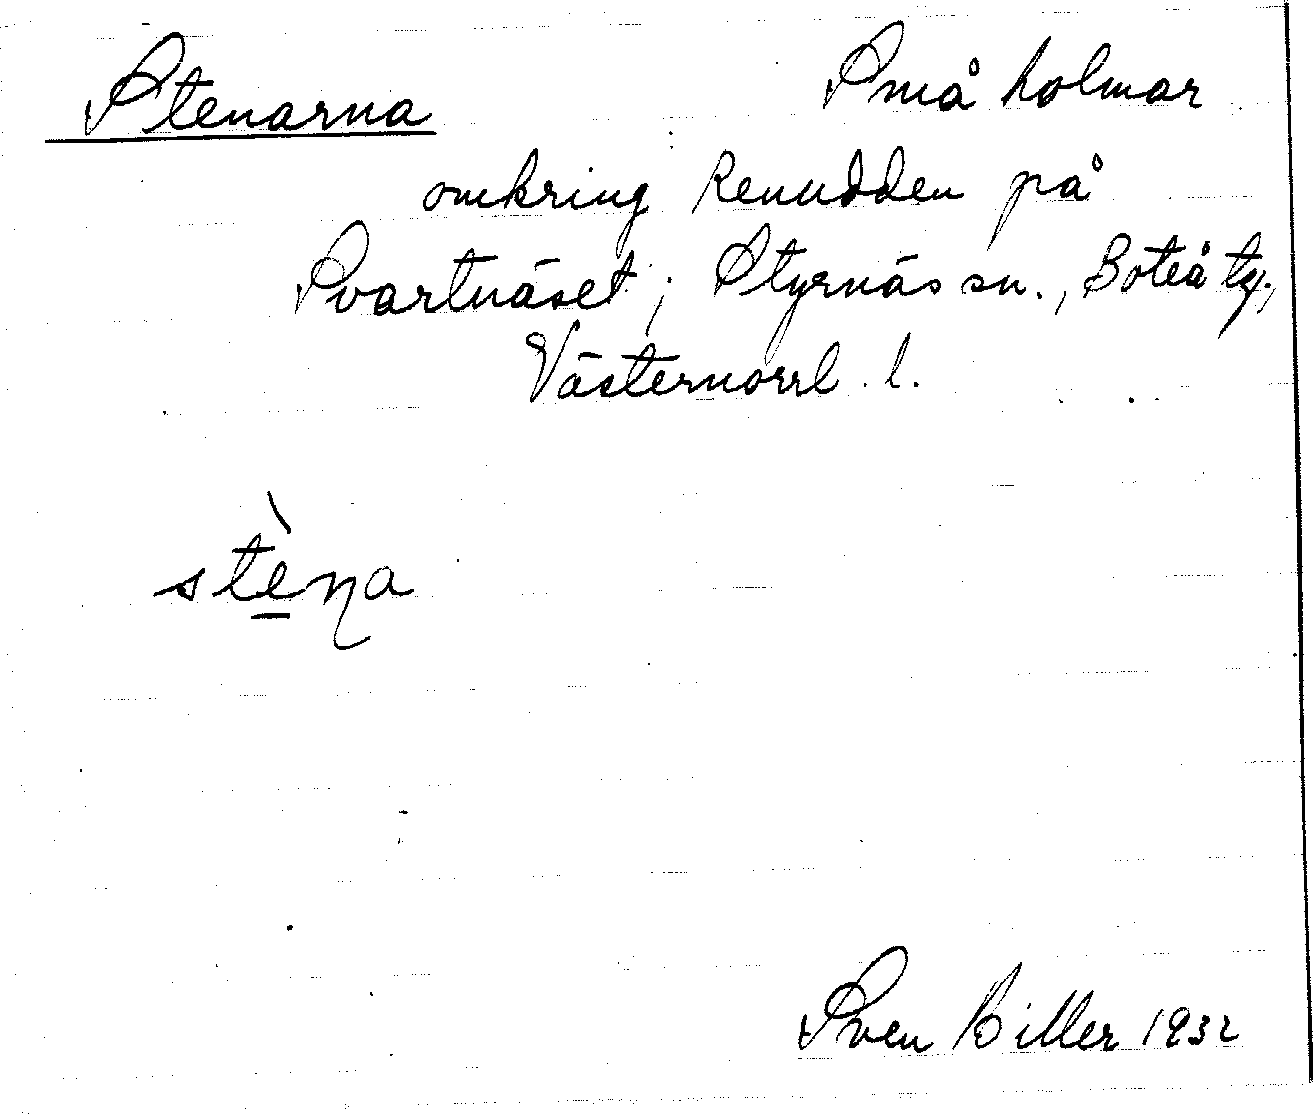 Stenarna Små holmar
omkring Renudden på
Svartnäset; Styrnäs sn., Boteå tg.,
Västernorrl. l.
stè̱ṇa
Sven Biller 1932